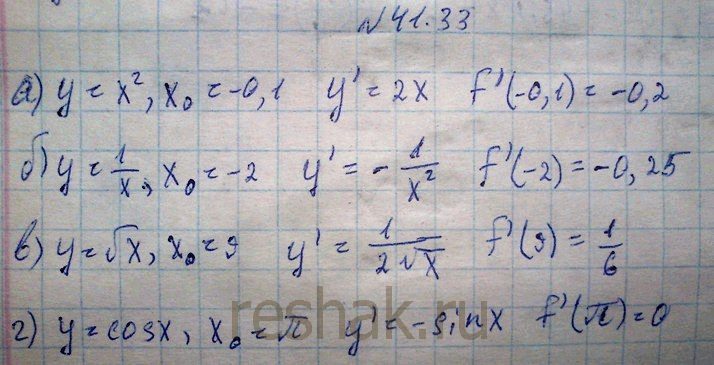 №41.33
а) y = x², x₀ = -0,1 y' = 2x f'(-0,1) = -0,2
б) y = 1/x, x₀ = -2 y' = - 1/x² f'(-2) = -0,25
в) y = √x, x₀ = 9 y' = 1/(2√x) f'(9) = 1/6
г) y = cosx, x₀ = π y' = -sinx f'(π) = 0
reshak.ru